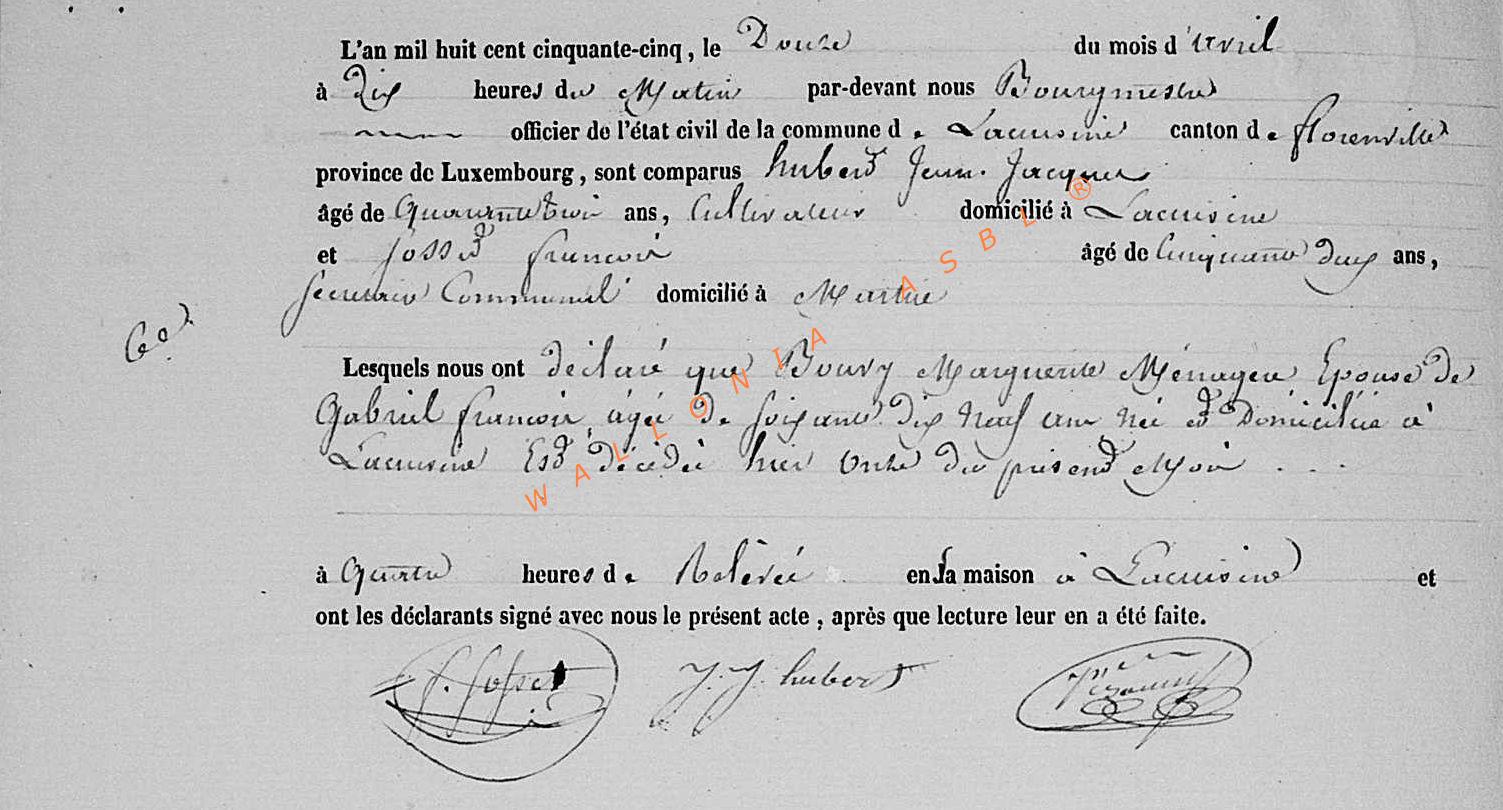 L'an mil huit cent cinquante-cinq, le Douze du mois d'avril
à Dix heures du Matin par-devant nous Bourgmestre
officier de l'état civil de la commune de Lacuisine canton de florenville
province de Luxembourg, sont comparus hubert Jean. Jacques
âgé de Quarante trois ans, Cultivateur domicilié à Lacuisine
et Josset francois âgé de Cinquante deux ans,
secretaire Communal domicilié à Martué
Lesquels nous ont déclaré que Bouvy Marguerite Ménagère Epouse de
Gabriel francois, agée de soixante dix neuf ans née et Domiciliée à
Lacuisine Est décédée hier onze du présent Mois . . .
à Quatre heures de Relevée en sa maison à Lacuisine et
ont les déclarants signé avec nous le présent acte, après que lecture leur en a été faite.
f. Josset J. J. hubert
WALLONIA ASBL ®